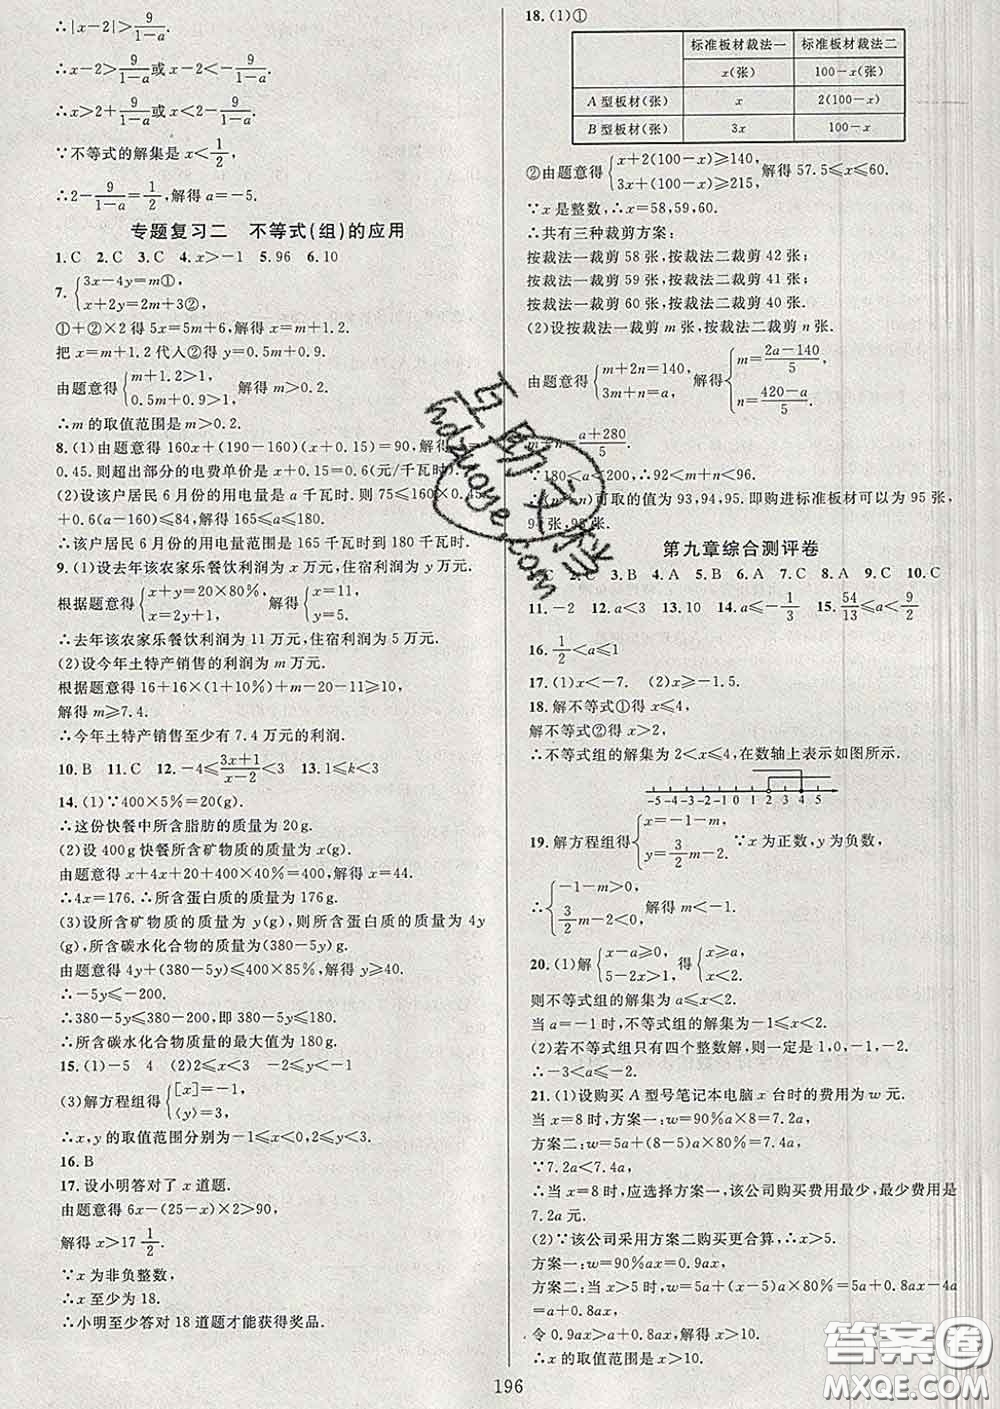 ∴|x−2|>9/(1−a).
∴x−2>9/(1−a)或x−2<−9/(1−a).
∴x>2+9/(1−a)或x<2−9/(1−a).
∵不等式的解集是x<1/2,
∴2−9/(1−a)=1/2,解得a=−5.
专题复习二 不等式(组)的应用
1.C 2.C 3.C 4.x>−1 5.96 6.10
7.{3x−4y=m①,
x+2y=2m+3②,
①+②×2得5x=5m+6,解得x=m+1.2.
把x=m+1.2代人②得y=0.5m+0.9.
由题意得{m+1.2>1,
0.5m+0.9>1, 解得m>0.2.
∴m的取值范围是m>0.2.
8.(1)由题意得160x+(190−160)(x+0.15)=90,解得
0.45.则超出部分的电费单价是x+0.15=0.6(元/千瓦时).
(2)设该户居民6月份的用电量是a千瓦时.则75≤160×0.45
+0.6(a−160)≤84,解得165≤a≤180.
∴该户居民6月份的用电量范围是165千瓦时到180千瓦时.
9.(1)设去年该农家乐餐饮利润为x万元,住宿利润为y万元.
根据题意得{x+y=20×80%,
x=2y+1, 解得{x=11,
y=5.
∴去年该农家乐餐饮利润为11万元,住宿利润为5万元.
(2)设今年土特产销售的利润为m万元.
根据题意得16+16×(1+10%)+m−20−11≥10,
解得m≥7.4.
∴今年土特产销售至少有7.4万元的利润.
10.B 11.C 12.−4≤(3x+1)/(x−2)<3 13.1≤k<3
14.(1)∵400×5%=20(g).
∴这份快餐中所含脂肪的质量为20g.
(2)设400g快餐所含矿物质的质量为x(g).
由题意得x+4x+20+400×40%=400,解得x=44.
∴4x=176.∴所含蛋白质的质量为176g.
(3)设所含矿物质的质量为y(g),则所含蛋白质的质量为4y
(g),所含碳水化合物的质量为(380−5y)g.
由题意得4y+(380−5y)≤400×85%,解得y≥40.
∴−5y≤−200.
∴380−5y≤380−200,即380−5y≤180.
∴所含碳水化合物质量的最大值为180g.
15.(1)−5 4 (2)2≤x<3 −2≤y<−1
(3)解方程组得{[x]=−1,
⟨y⟩=3.
∴x,y的取值范围分别为−1≤x<0,2≤y<3.
16.B
17.设小明答对了x道题.
由题意得6x−(25−x)×2>90,
解得x>17 1/2.
∵x为非负整数,
∴x至少为18.
∴小明至少答对18道题才能获得奖品.
18.(1)①
标准板材裁法一 标准板材裁法二
x(张) 100−x(张)
A型板材(张) x 2(100−x)
B型板材(张) 3x 100−x
②由题意得{x+2(100−x)≥140,
3x+(100−x)≥215, 解得57.5≤x≤60.
∵x是整数,∴x=58,59,60.
∴共有三种裁剪方案:
按裁法一裁剪58张,按裁法二裁剪42张;
按裁法一裁剪59张,按裁法二裁剪41张;
按裁法一裁剪60张,按裁法二裁剪40张.
(2)设按裁法一裁剪m张,按裁法二裁剪n张.
由题意得{m+2n=140,
3m+n=a, 解得{m=(2a−140)/5,
n=(420−a)/5.
=(a+280)/5.
∵180<a<200,∴92<m+n<96.
可取的值为93,94,95.即购进标准板材可以为95张,
第九章综合测评卷
2.C 3.B 4.A 5.B 6.A 7.C 8.A 9.C 10.C
11.−2 12.a<3 13.10 14.a≤−1/3 15.54/13≤a<9/2
16.1/2<a≤1
17.(1)x<−7. (2)x≥−1.5.
18.解不等式①得x≤4,
解不等式②得x>2,
∴不等式组的解集为2<x≤4,在数轴上表示如图所示.
−5 −4 −3 −2 −1 0 1 2 3 4 5
19.解方程组得{x=−1−m,
y=3/2m−2. ∵x为正数,y为负数,
∴{−1−m>0,
3/2m−2<0, 解得m<−1.
20.(1)解{x−a≥0,
5−2x>1, 得{x≥a,
x<2.
则不等式组的解集为a≤x<2.
当a=−1时,不等式组的解集为−1≤x<2.
(2)若不等式组只有四个整数解,则一定是1,0,−1,−2.
∴−3<a≤−2.
21.(1)设购买A型号笔记本电脑x台时的费用为w元.
当x=8时,方案一:w=90%a×8=7.2a.
方案二:w=5a+(8−5)a×80%=7.4a.
∵7.2a<7.4a.
∴当x=8时,应选择方案一,该公司购买费用最少,最少费用是
7.2a元.
(2)∵该公司采用方案二购买更合算,∴x>5.
方案一:w=90%ax=0.9ax.
方案二:当x>5时,w=5a+(x−5)a×80%=5a+0.8ax−4a
=a+0.8ax,
令0.9ax>a+0.8ax,解得x>10.
∴x的取值范围是x>10.
196
互助文档
hdzuoye.com
答案圈
MXQE.COM